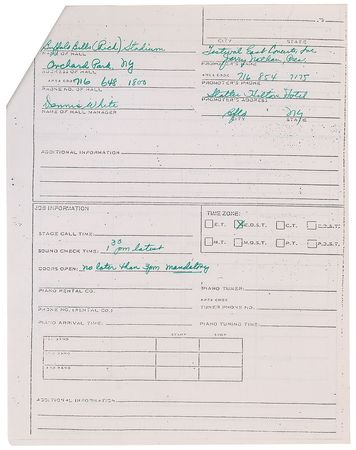 CITY STATE
Buffalo Bills (Rich) Stadium
Festival East Concerts, Inc
NAME OF HALL
Jerry Nathan, Pres.
Orchard Park, NY
PROMOTER'S NAME
ADDRESS OF HALL
AREA CODE 716 648 1800
AREA CODE 716 854 7175
PHONE NO. OF HALL
PROMOTER'S PHONE
Dennis White
Statler Hilton Hotel
NAME OF HALL MANAGER
PROMOTER'S ADDRESS
Bflo NY
CITY STATE
ADDITIONAL INFORMATION
JOB INFORMATION
TIME ZONE:
E.T. E.D.S.T. C.T. C.D.S.T.
M.T. M.D.S.T. P.T. P.D.S.T.
STAGE CALL TIME:
SOUND CHECK TIME: 1 30 pm latest
DOORS OPEN: no later than 3pm mandatory
PIANO RENTAL CO. PIANO TUNER:
AREA CODE
PHONE NO. (RENTAL CO.) TUNER PHONE NO.
PIANO ARRIVAL TIME: PIANO TUNING TIME:
START STOP
ADDITIONAL INFORMATION